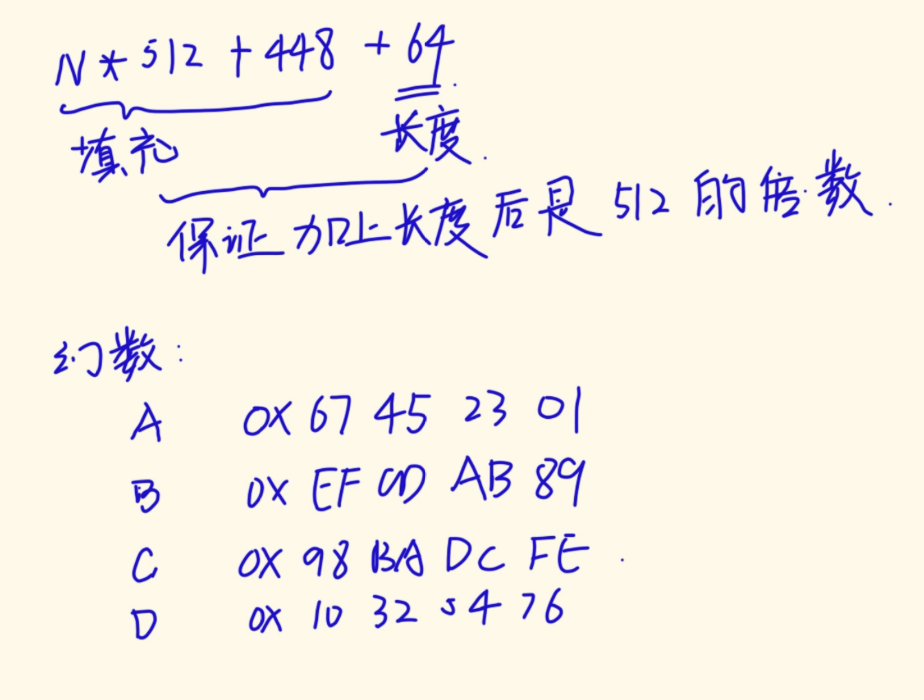 N * 512 + 448 + 64
填充 长度.
保证加上长度后是 512 的倍数.
幻数:
A 0X 67 45 23 01
B 0X EF CD AB 89
C 0X 98 BA DC FE
D 0X 10 32 54 76